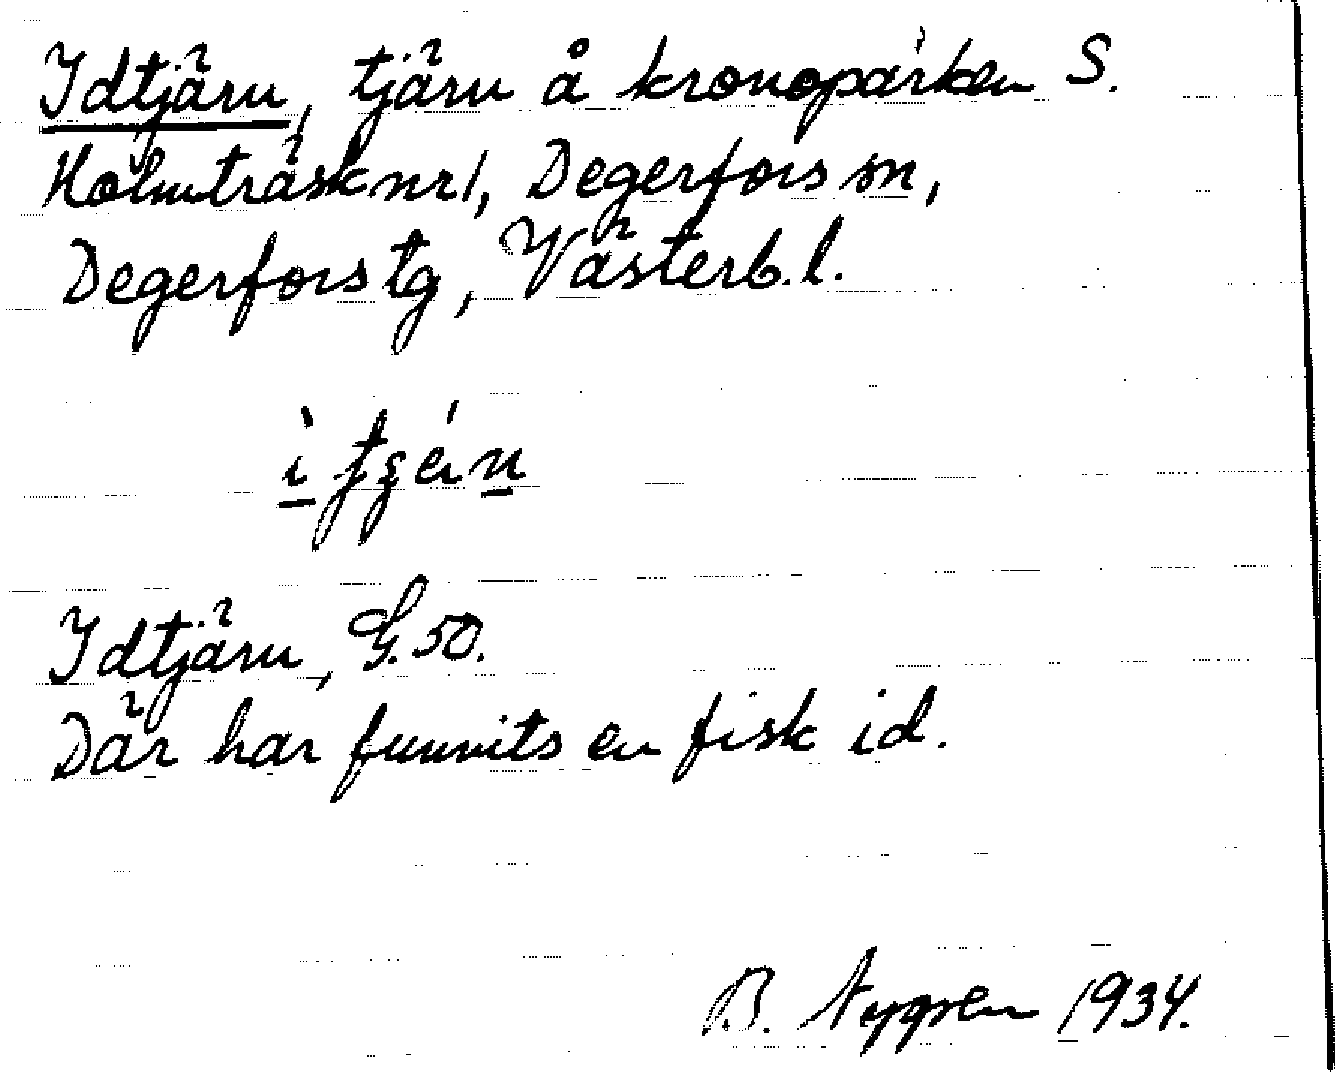 Idtjärn, tjärn å kronoparken S.
Holmträsk nr 1, Degerfors sn,
Degerfors tg, Västerb. l.
Idtjärn, G. 50.
Där har funnits en fisk id.
B. Nygren 1934.